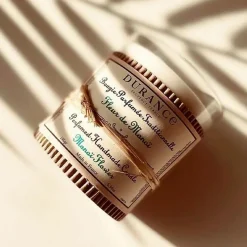 DURANCE
Bougie Parfumée Traditionnelle
Fleur de Monoï
Perfumed Handmade Candle
Monoï Flower